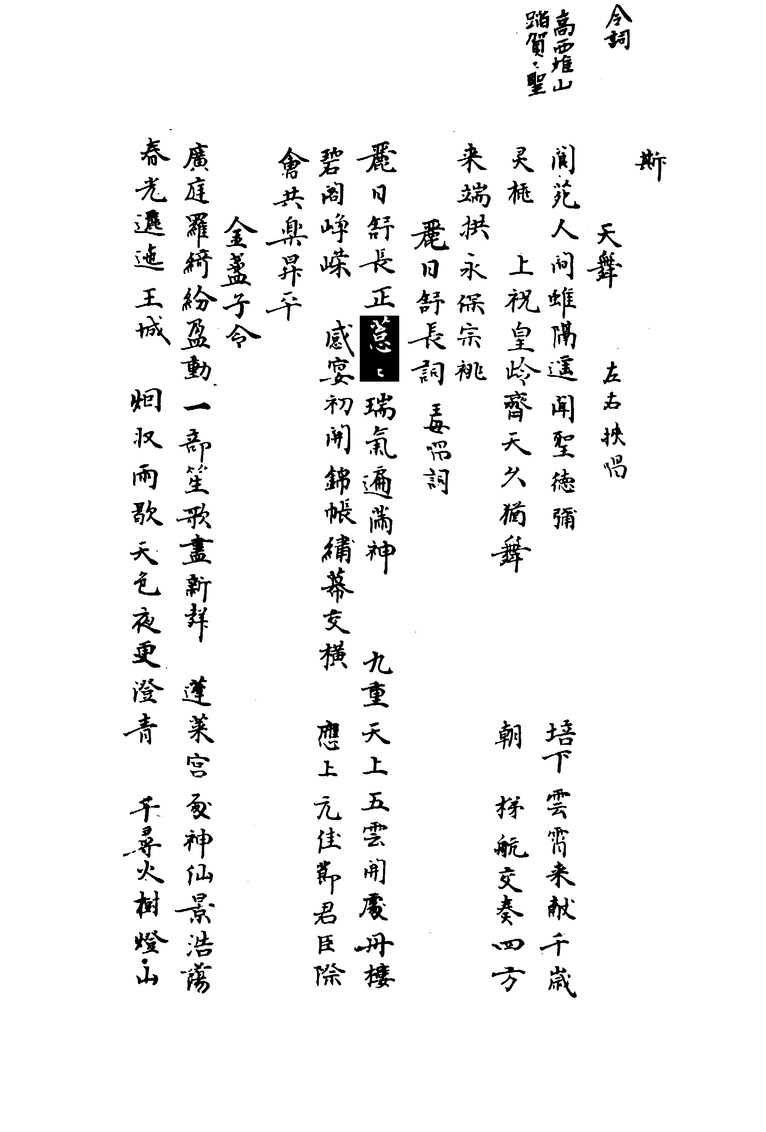 令詞
高西堆山
踏賀〻聖
斯
天舞 左右挾唱
閬苑人間雖隔遥聞聖徳彌 培下雲霄来献千歳
灵桃 上祝皇岭齊天久猶舞 朝 梯航交奏四方
来端拱永保宗祧
麗日舒長詞 毒唱詞
麗日舒長正葱〻瑞氣遍滿神 九重天上五雲開處丹樓
碧閣崢嶸 感宴初開錦帳繡幕交橫 應上元佳節君臣際
會共樂昇平
金盞子令
廣庭羅綺紛盈動一部笙歌盡新詳 蓬莱宫 神仙景浩蕩
春光邐迤王城 烟収雨歇天色夜更澄青 千尋火樹燈山